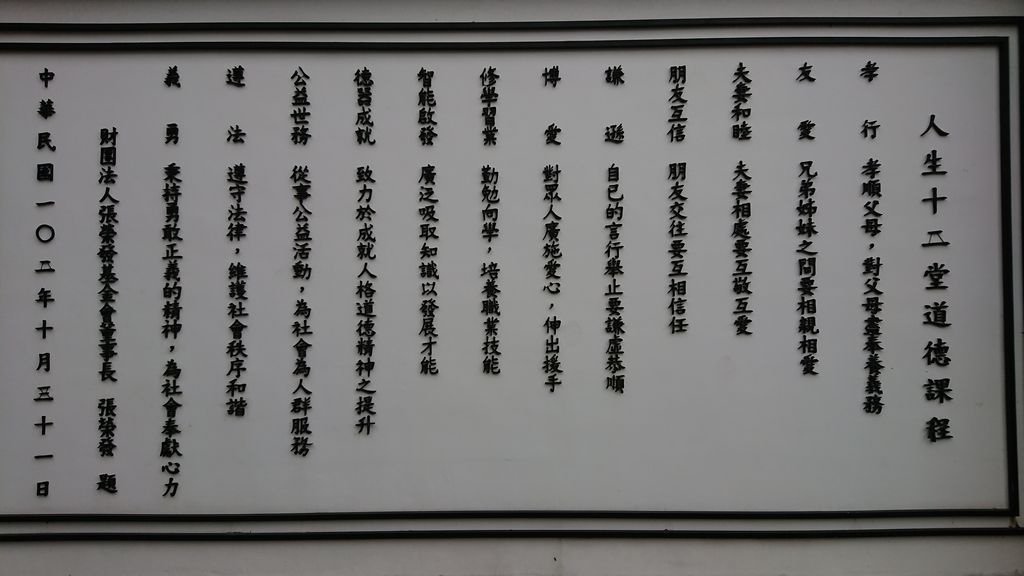 人生十二堂道德課程
孝行 孝順父母，對父母盡奉養義務
友愛 兄弟姊妹之間要相親相愛
夫妻和睦 夫妻相處要互敬互愛
朋友互信 朋友交往要互相信任
謙遜 自己的言行舉止要謙虛恭順
博愛 對眾人廣施愛心，伸出援手
修學習業 勤勉向學，培養職業技能
智能啟發 廣泛吸取知識以發展才能
德器成就 致力於成就人格道德精神之提升
公益世務 從事公益活動，為社會為人群服務
遵法 遵守法律，維護社會秩序和諧
義勇 秉持勇敢正義的精神，為社會奉獻心力
財團法人張榮發基金會董事長 張榮發 題
中華民國一〇二年十月三十一日